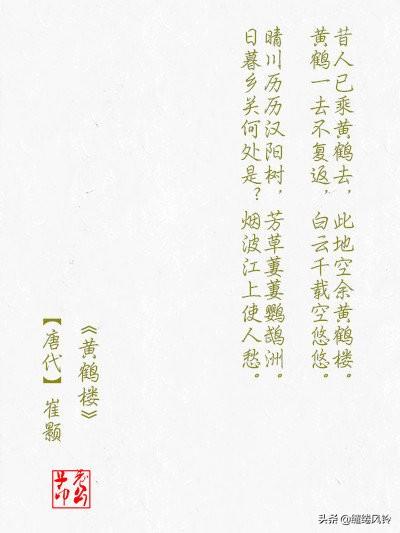 昔人已乘黄鹤去，此地空余黄鹤楼。
黄鹤一去不复返，白云千载空悠悠。
晴川历历汉阳树，芳草萋萋鹦鹉洲。
日暮乡关何处是？烟波江上使人愁。
《黄鹤楼》
【唐代】崔颢
头条@缱绻风铃